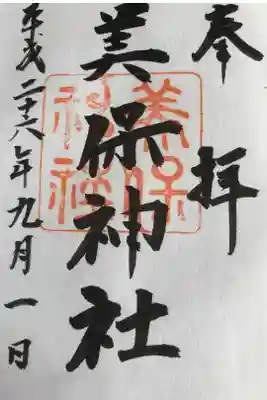 奉拝
美保神社
美保神社
平成二十六年九月一日